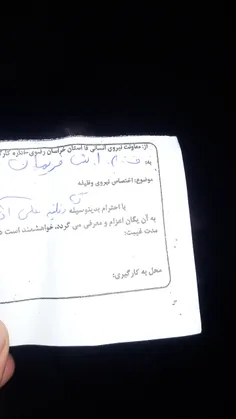 از: معاونت نیروی انسانی فا استان خراسان رضوی-اداره کارگ
به: ف. م. ا. ن فریمان
موضوع: اختصاص نیروی وظیفه
با احترام بدینوسیله وظیفه علی
به آن یگان اعزام و معرفی می گردد. خواهشمند است د
مدت غیبت:
محل به کارگیری: